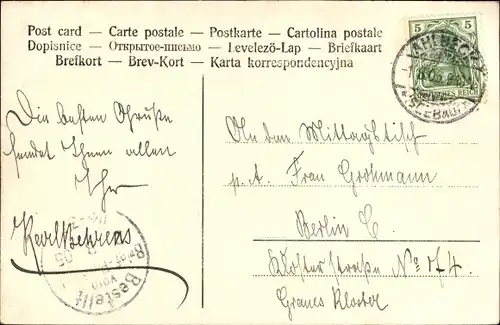 Post card — Carte postale — Postkarte — Cartolina postale
Dopisnice — Открытое письмо — Levelező-Lap — Briefkaart
Brefkort — Brev-Kort — Karta korrespondencyjna
5 5
AHLBECK
SEEBAD
DEUTSCHES REICH
Die besten Grüße
sendet Ihnen allen
Ihr
Karl Behrens
Bestellt
vom
An den Mittagstisch
p. A. Frau Grohmann
Berlin C.
Klosterstraße No 174.
Graues Kloster